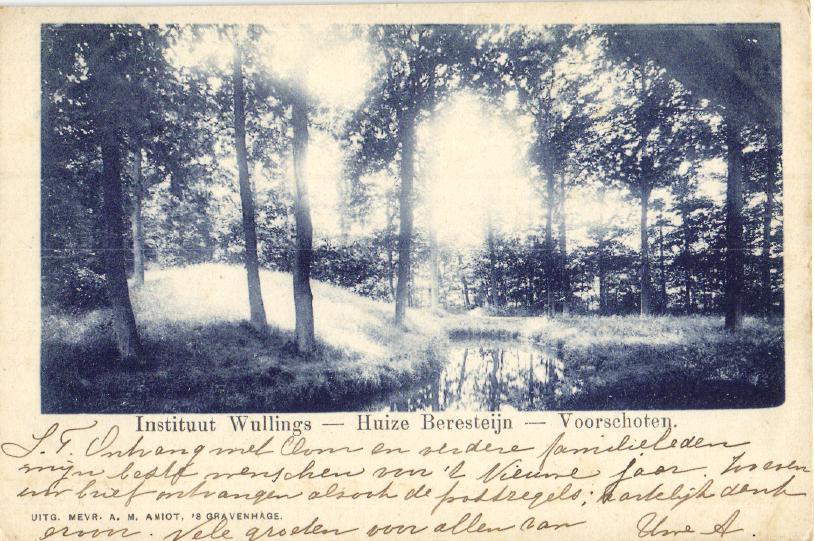 Instituut Wullings — Huize Beresteijn — Voorschoten.
S. T. Ontvang met Oom en verdere familieleden
mijn beste menschen voor 't Nieuwe jaar. Zooeven
uw brief ontvangen alsook de postzegels; hartelijk dank
UITG. MEVR. A. M. AMIOT, 'S GRAVENHAGE.
ervoor. Vele groeten voor allen van Uwe A.